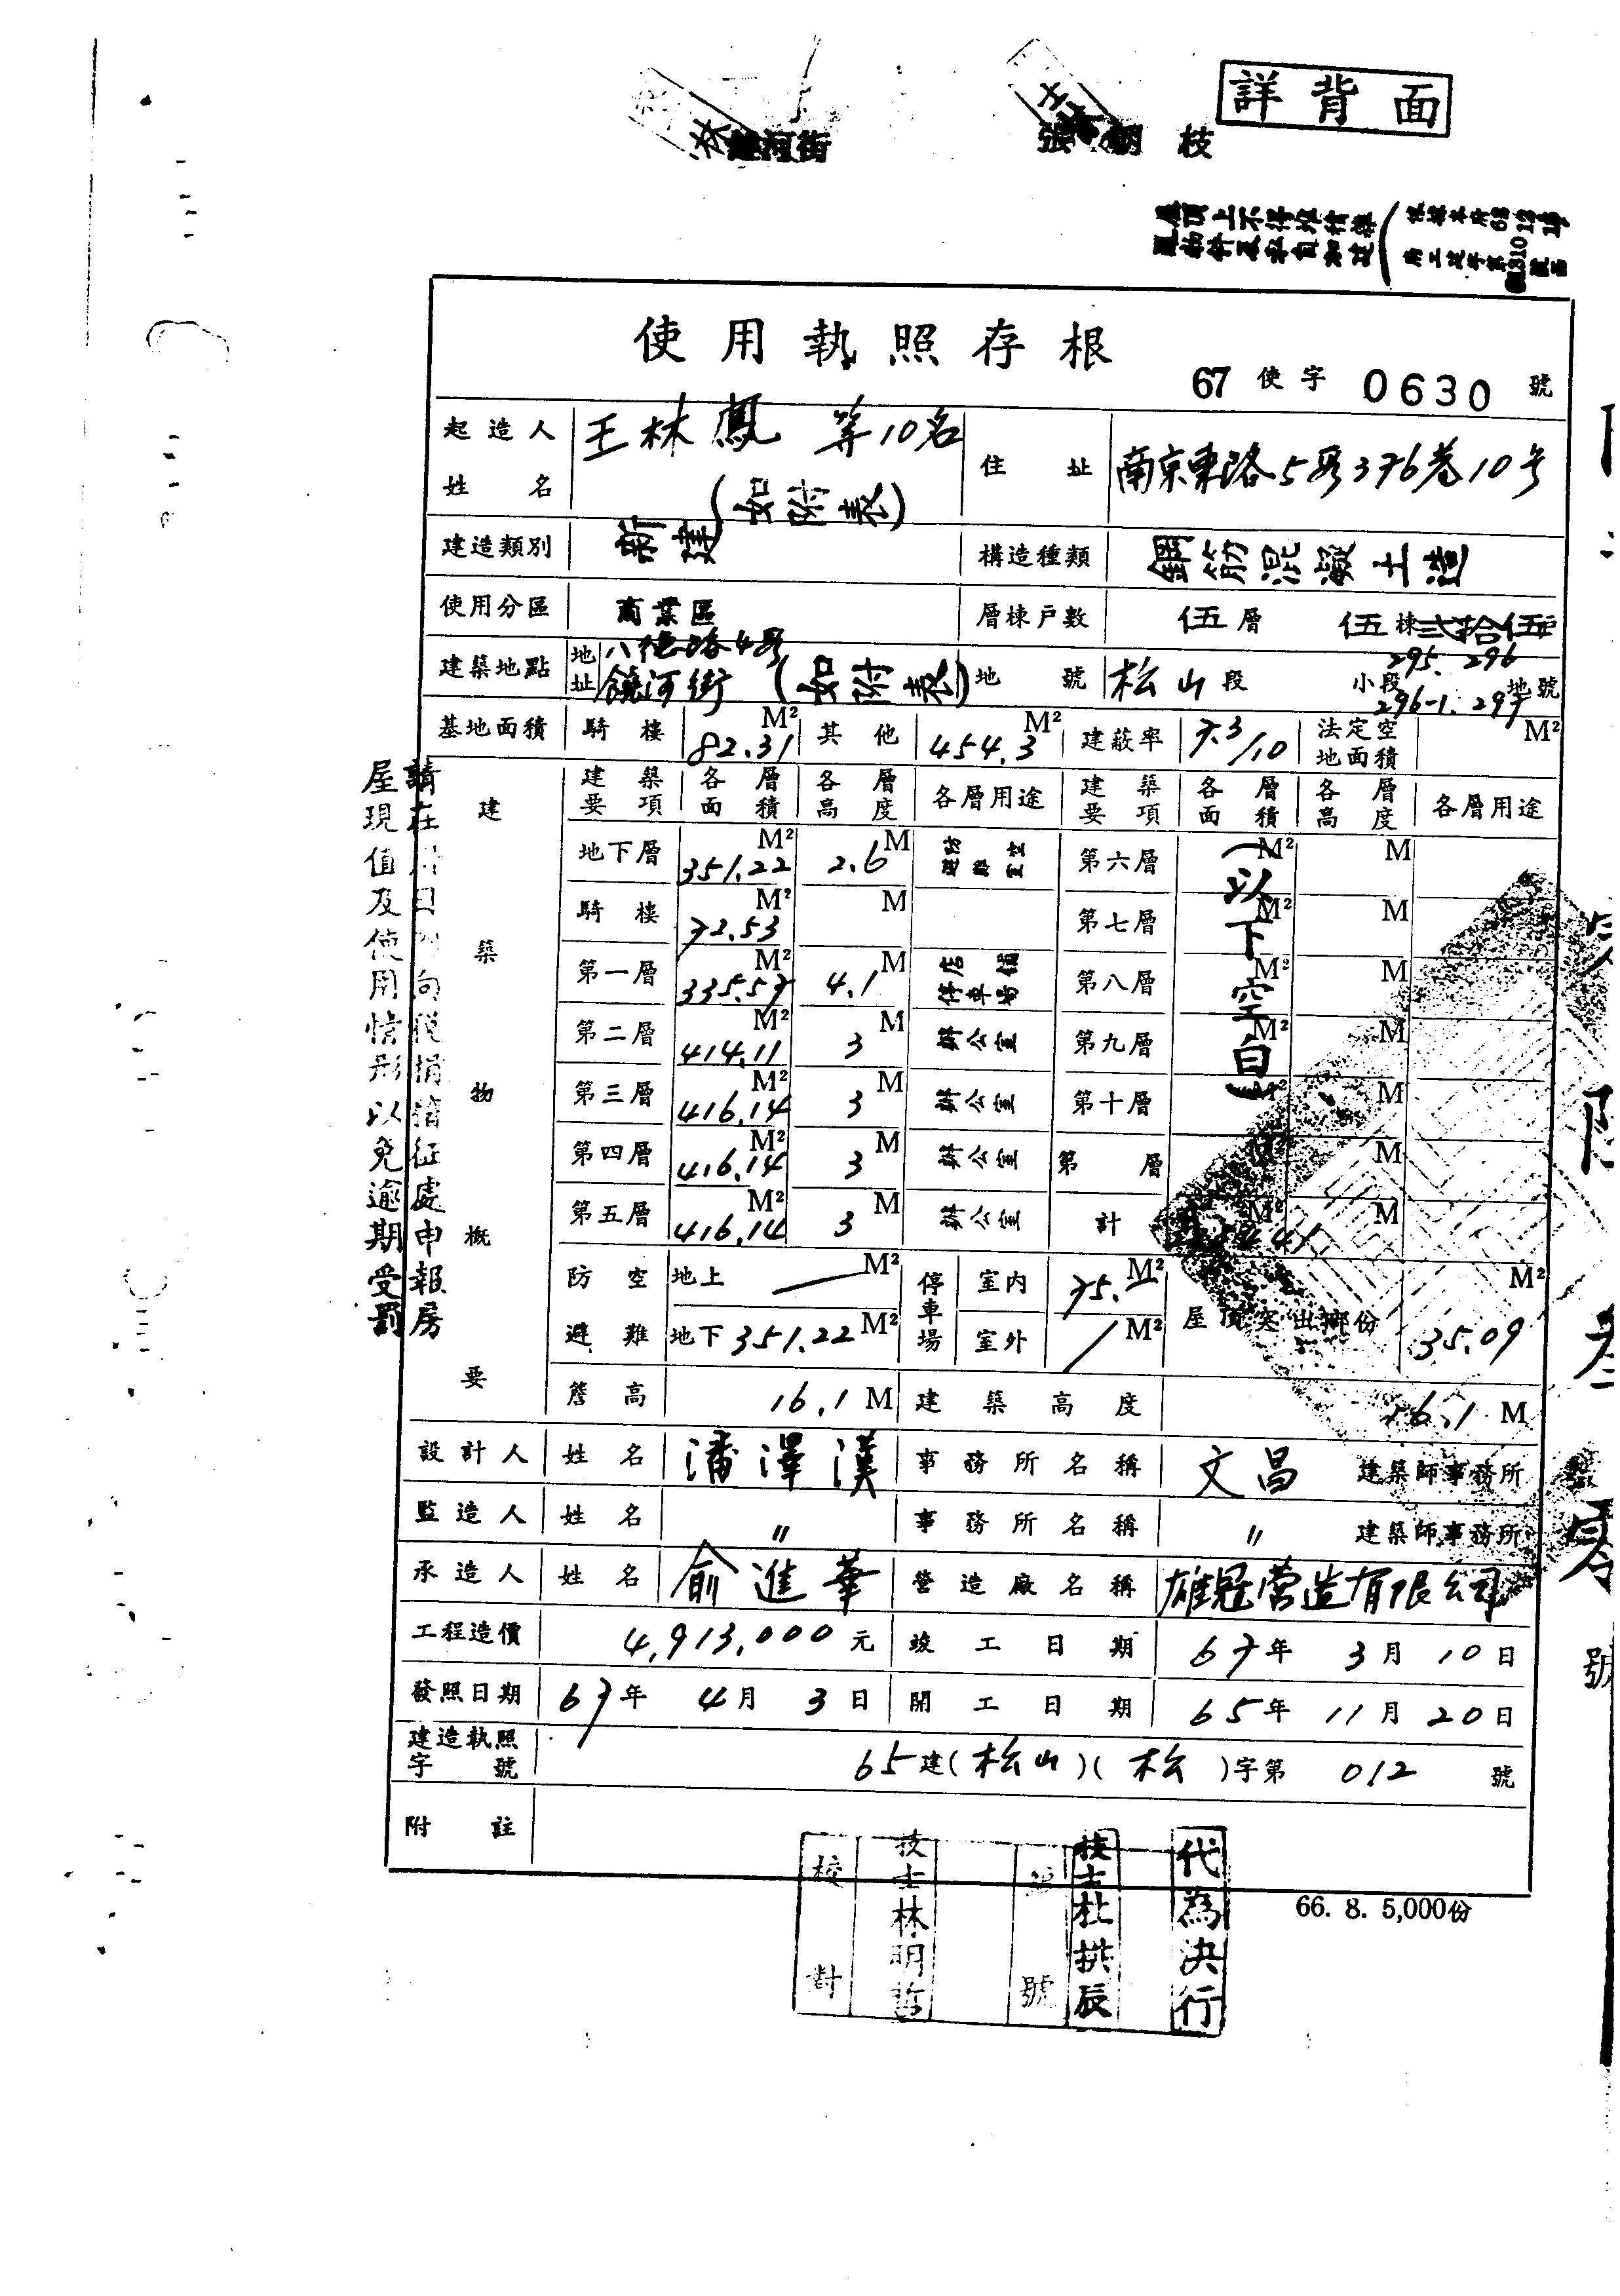 詳背面
饒河街
枝
屋頂上不得投情樂
使用執照存根
67 使字 0630 號
起造人姓名 王林鳳 等10名 (如附表) 住址 南京東路5段376巷10号
建造類別 新建 構造種類 鋼筋混凝土造
使用分區 商業區 層棟戶數 伍層 伍棟 弍拾伍戶
建築地點 地址 八德路4段 饒河街 (如附表) 地號 松山段 小段 295. 296 296-1. 297 地號
基地面積 騎樓 82.31 M² 其他 454.3 M² 建蔽率 7.3/10 法定空地面積 M²
建築物概要
建築要項 各層面積 各層高度 各層用途 建築要項 各層面積 各層高度 各層用途
地下層 351.22 M² 2.6 M 防空避難室 第六層 M² M
騎樓 72.53 M² M 第七層 M² M
第一層 335.57 M² 4.1 M 店舖 停車場 第八層 M² M
第二層 414.11 M² 3 M 辦公室 第九層 M² M
第三層 416.14 M² 3 M 辦公室 第十層 M² M
第四層 416.14 M² 3 M 辦公室 第 層 M
第五層 416.14 M² 3 M 辦公室 計 M² M
(以下空白)
防空避難 地上 — M² 停車場 室內 75.— M² 屋頂突出部份 35.09 M²
地下 351.22 M² 室外 / M²
簷高 16.1 M 建築高度 16.1 M
設計人 姓名 潘澤漢 事務所名稱 文昌 建築師事務所
監造人 姓名 〃 事務所名稱 〃 建築師事務所
承造人 姓名 俞進華 營造廠名稱 雄冠营造有限公司
工程造價 4,913,000元 竣工日期 67年 3月 10日
發照日期 67年 4月 3日 開工日期 65年 11月 20日
建造執照字號 65建(松山)(松)字第 012 號
附註
請在 日 向稅捐 征處申報房
屋現值及使用情形以免逾期受罰
校對
技士林明哲
號
技士杜拱辰
代為決行
66. 8. 5,000份
號